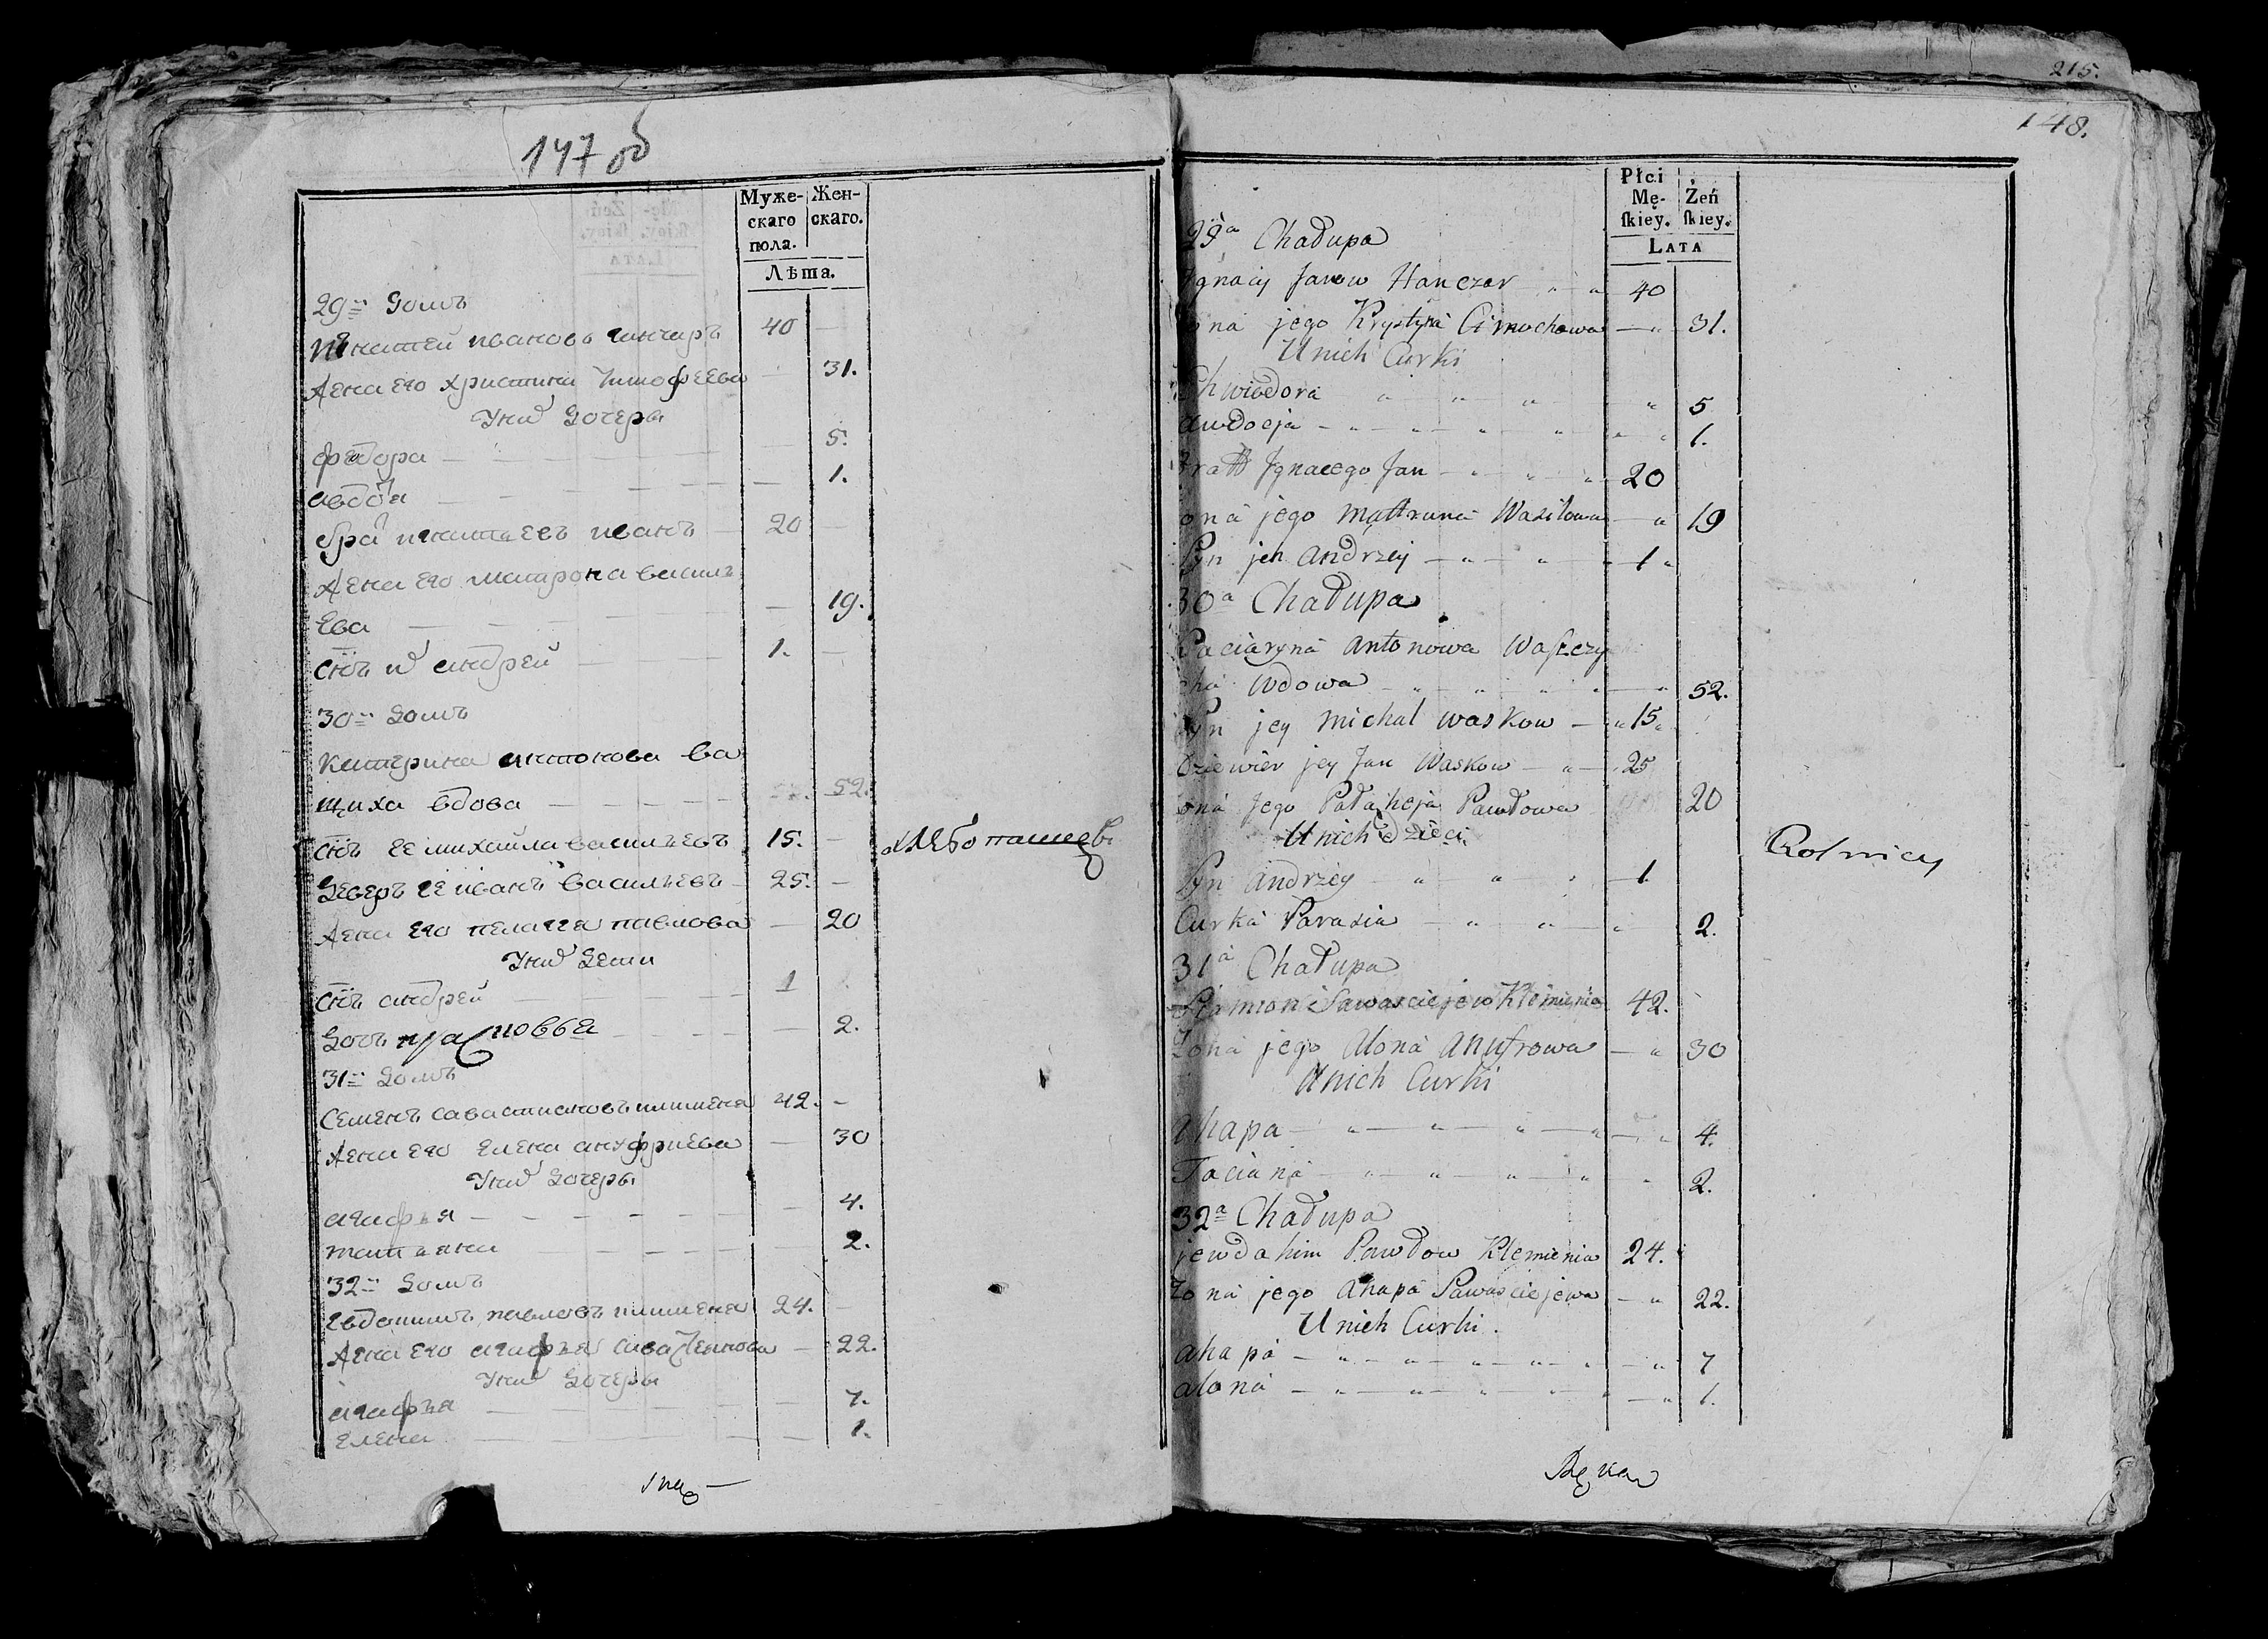 147 об
Муже-
скаго
пола.
Жен-
скаго.
Лѣта.
29й Домъ
Игнатей ивановъ ганчаръ 40 —
Жена его христина тимофеева — 31.
У них Дочеры
федора — 5.
авдотя — 1.
бра игнатьевъ иванъ 20 —
Жена его матрона василь
ева — 19.
Снъ их андрей 1. —
30й Домъ
катерина антонова ва
щиха вдова — 52.
Снъ ее михайла васильевъ 15. —
хлебопашцевъ
Деверъ ее иванъ васильевъ 25. —
Жена его пелагея павлова — 20
У них Дети
Снъ андрей 1
Дочъ прасковея — 2.
31й Домъ
Семенъ савастиановъ 42. —
Жена его елена ануфриева — 30
У них Дочеры
агафья — 4.
татьяна — 2.
32й Домъ
Евдокимъ павловъ 24. —
Жена его агафья — 22.
У них Дочеры
агафья — 7.
елена — 1.
215.
148.
Płci
Mę-
ſkiey.
Żeń
ſkiey.
LATA
29a Chałupa
Ignacy Janow Hanczar 40
ona jego Krystyna Cimochowa 31.
U nich Curki
Chwiedora 5
Audocja 1.
Bratt Jgnacego Jan 20
ona jego Mattruna Wasilowa 19
Syn jch Andrzey 1
30a Chałupa
Kaciaryna Antonowa Waszczy
cha Wdowa 52.
Syn jey Michał Waskow 15
Dziewier jey Jan Waskow 25
ona Jego Pałaheja Pawłowa 20
U nich dzieci
Rolnicy
Syn Andrzey 1
Curka Parasia 2.
31a Chałupa
Siemion Sawasciejew Klemienia 42.
Żona jego Alona Anufrowa 30
U nich Curki
Ahapa 4.
Taciana 2.
32a Chałupa
jewdahim Pawłow Klemienia 24.
Żona jego Ahapa Sawasciejewa 22.
U nich Curki.
Ahapa 7
Alona 1.